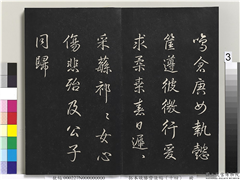 鳴倉庚女執懿
筐遵彼微行爰
求柔桑春日遲〻
采蘩祁〻女心
傷悲殆及公子
同歸
3